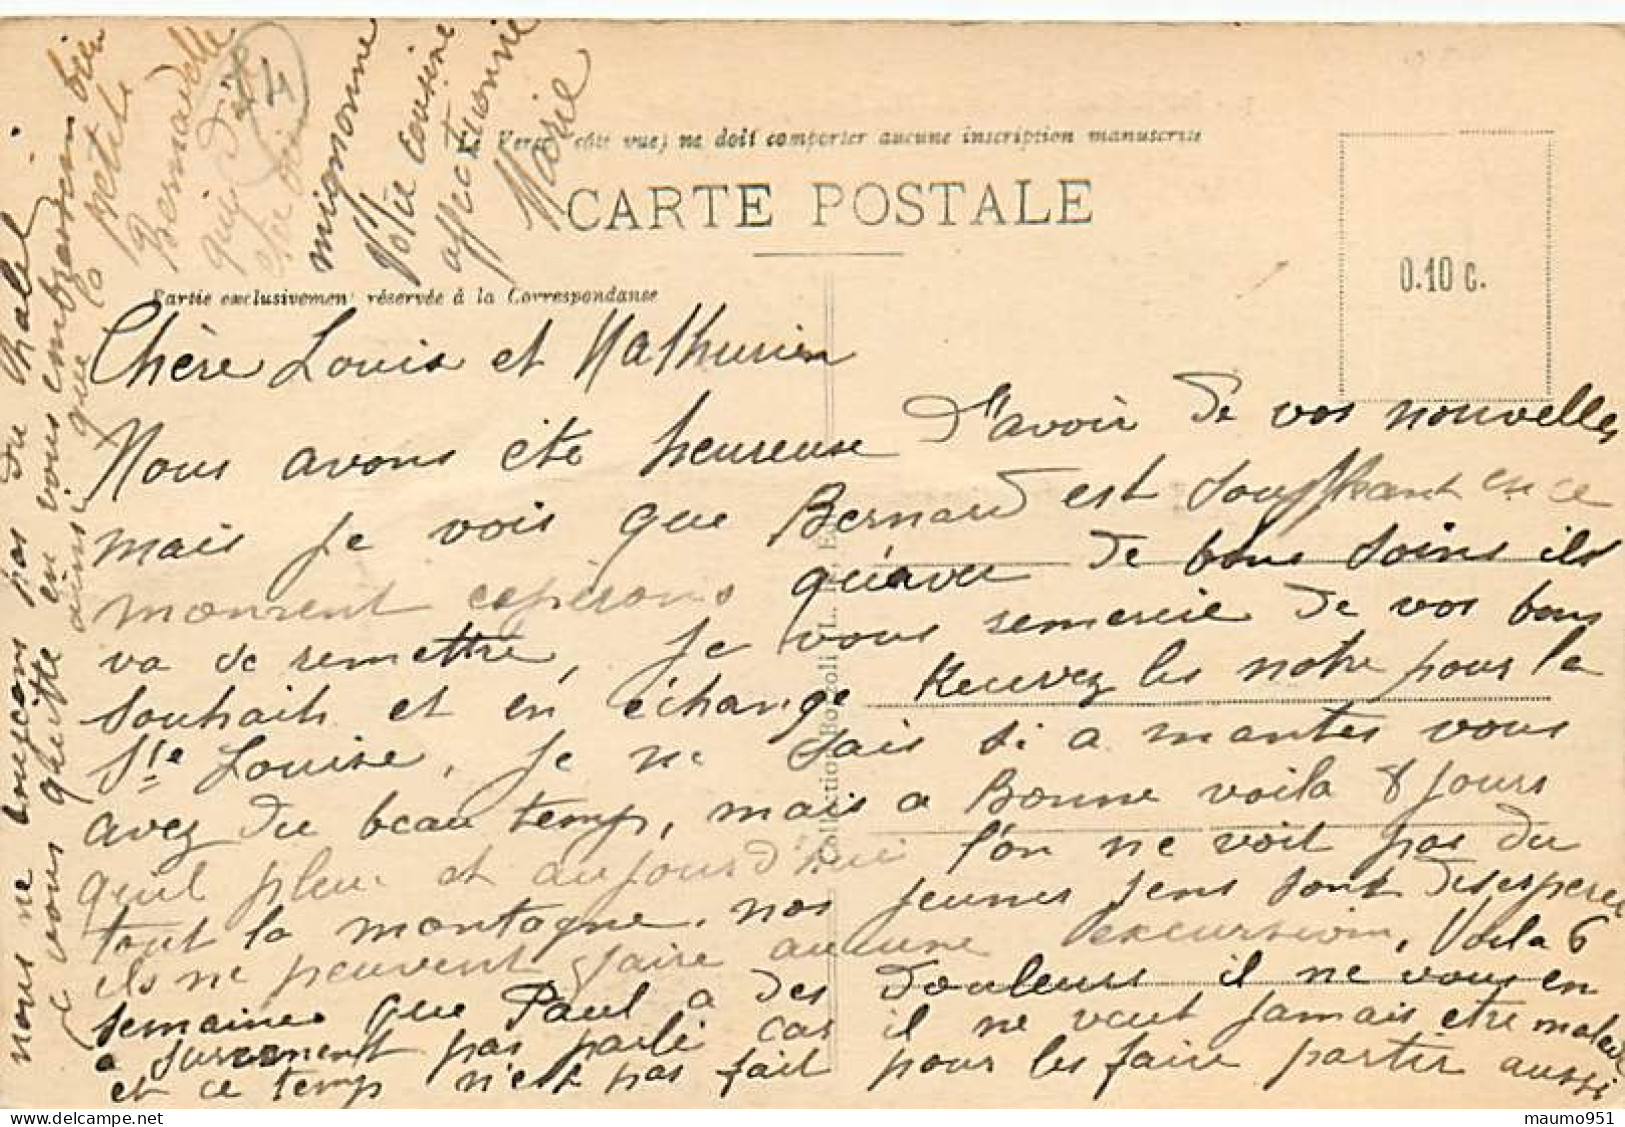 Le Verso (côté vue) ne doit comporter aucune inscription manuscrite
CARTE POSTALE
0.10 c.
Partie exclusivement réservée à la Correspondanse
Collection L.
Chère Louis et Mathurien
Nous avons été heureuse d'avoir de vos nouvelles
mais je vois que Bernard est souffrant en ce
moment espérons qu'avec de bons soins ils
va se remettre, je vous remercie de vos bons
souhaits et en échange Recevez les notre pour la
Ste Louise, je ne sais si a mantes vous
avez du beau temps, mais a Bonne voila 8 jours
quil pleut et aujourd'hui l'on ne voit pas du
tout la montagne, nos jeunes jens sont desesperer
ils ne peuvent faire aucune excursion, Voila 6
semaines que Paul a des douleurs il ne vous en
a surement pas parlé car il ne veut jamais etre malade
et ce temps n'est pas fait pour les faire partir aussi
nous ne bougeons pas du Chalet
je vous quitte en vous embrassant bien
ainsi que la petite
Bernadette
qui doit
etre bien
mignonne
Votre cousine
affectionnée
Marie
4
maumo951